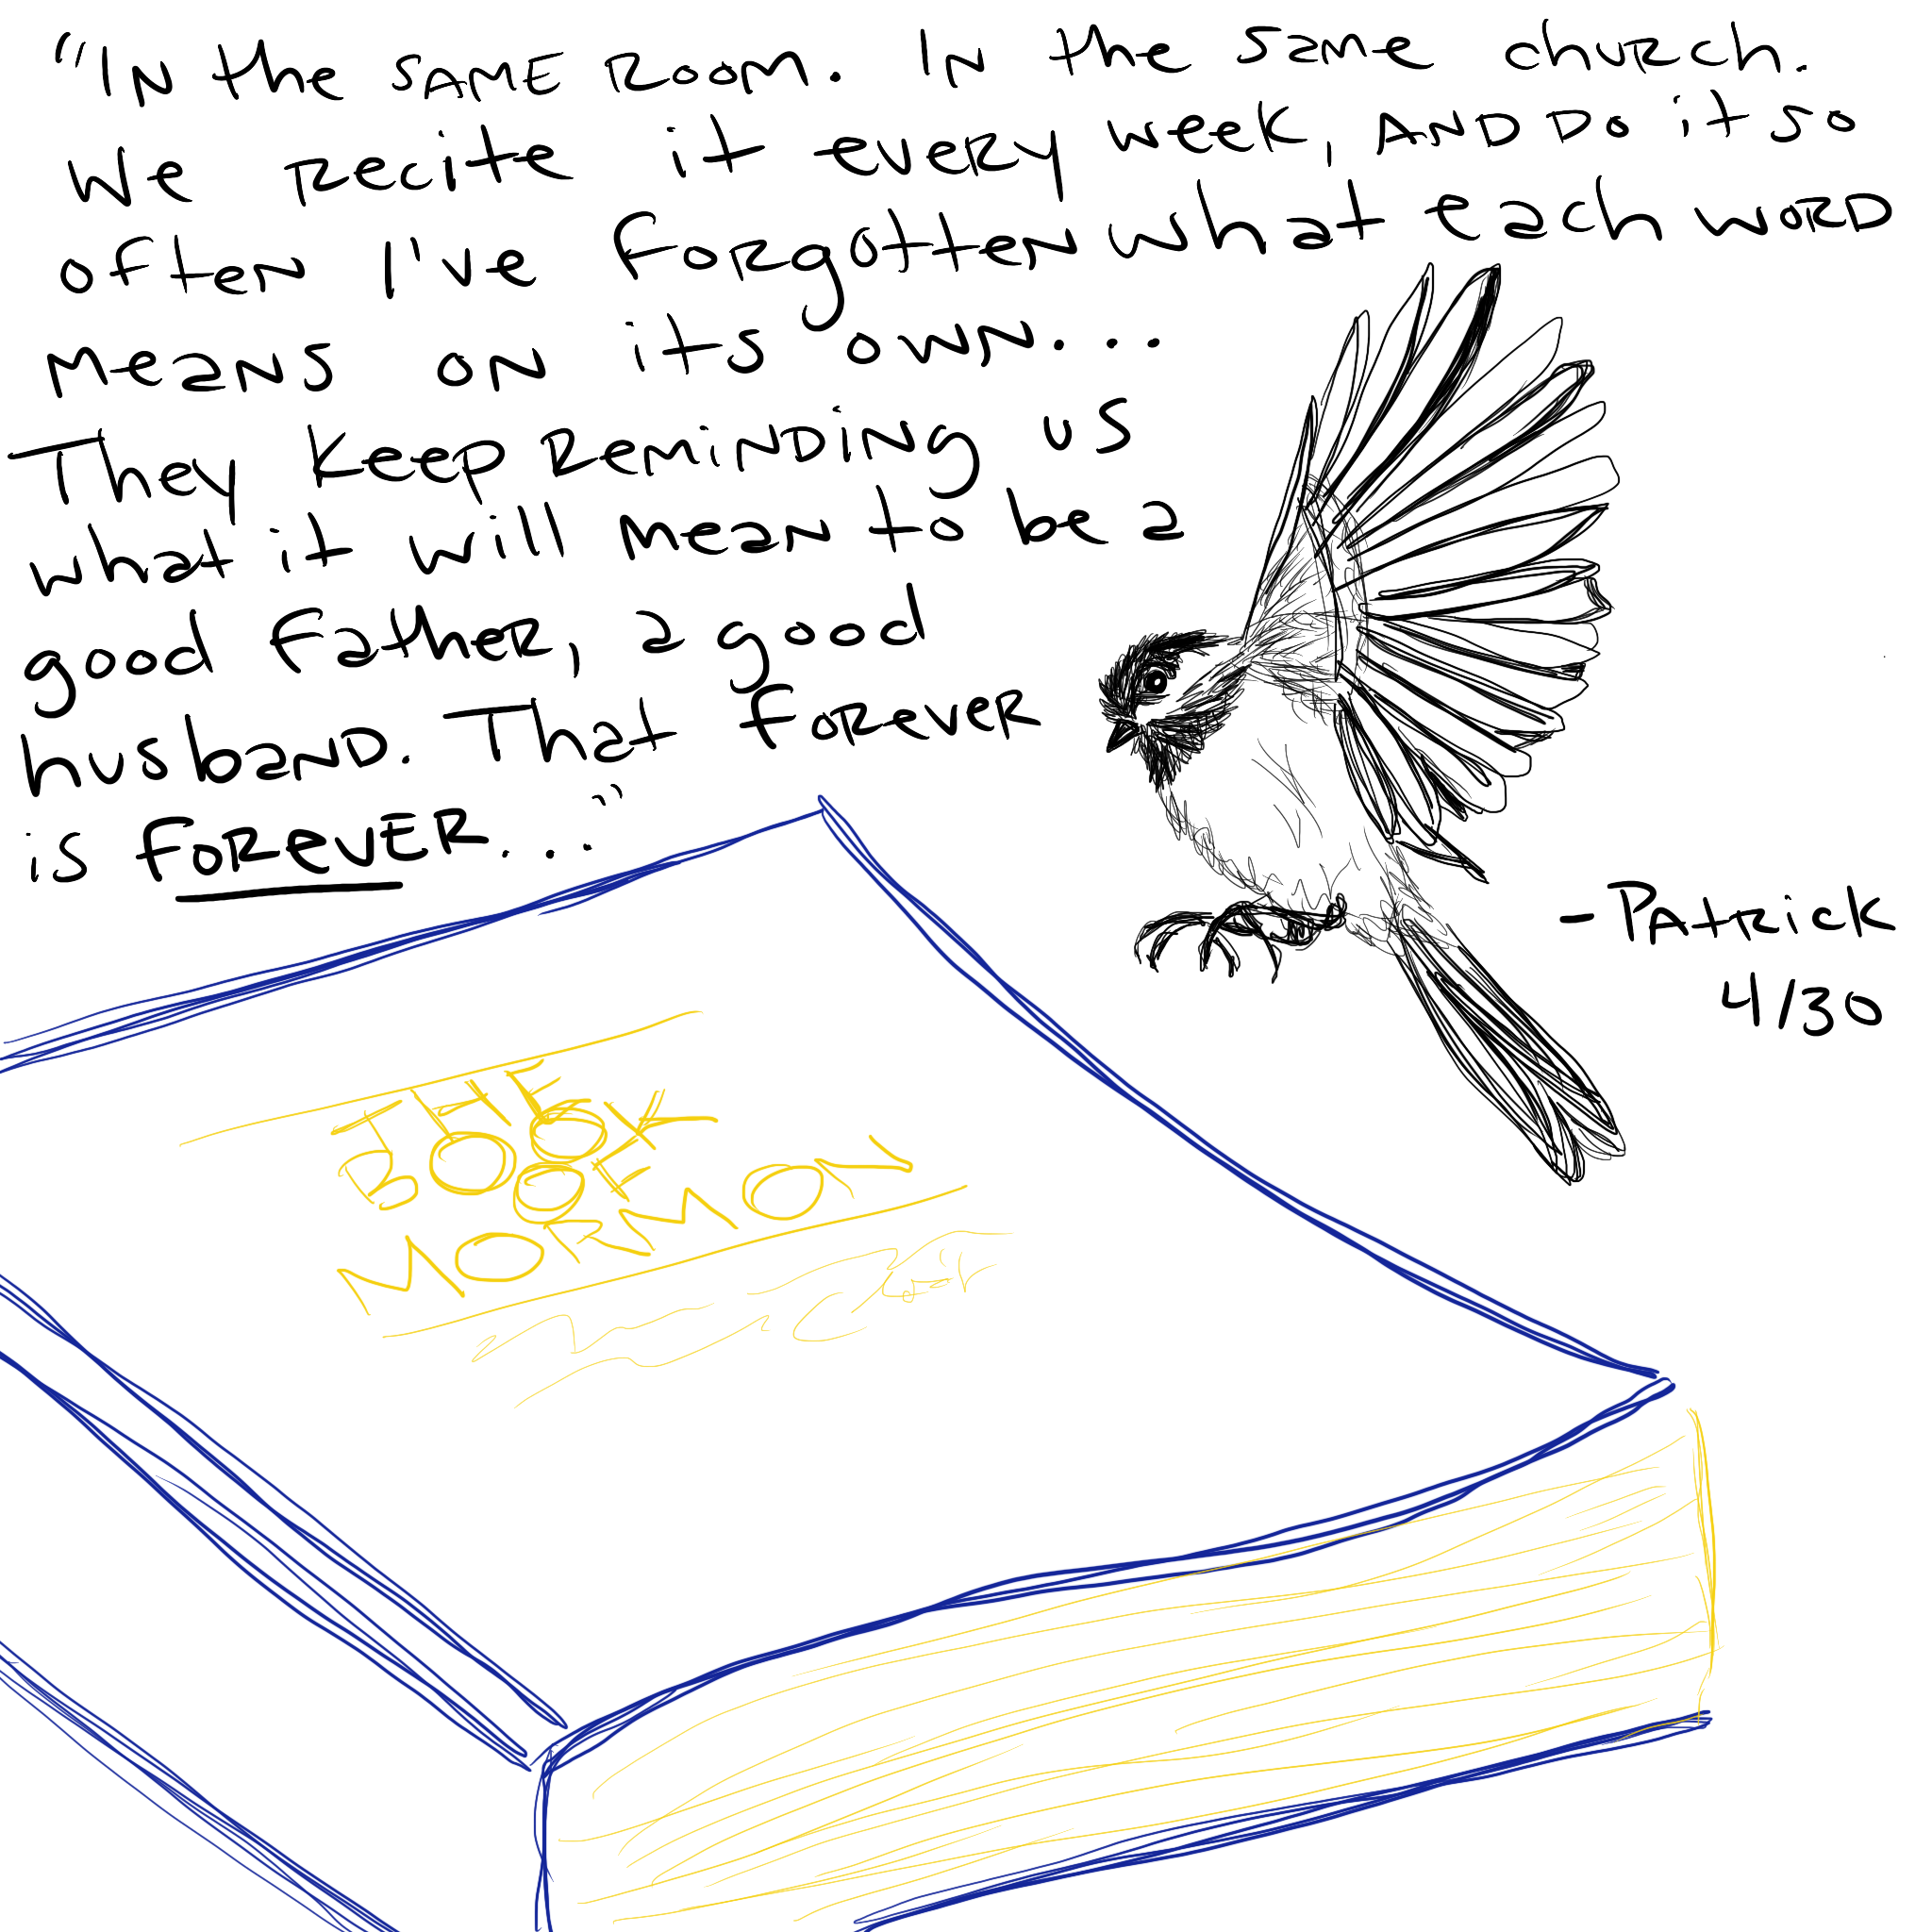 "IN the SAME ROOM. IN the same church.
We recite it every week, AND DO it so
often I've forgotten what each word
means on its own...
They keep reminding us
what it will mean to be a
good father, a good
husband. That forever
is forever..."
-Patrick
4/30
THE
BOOK
OF
MORMON